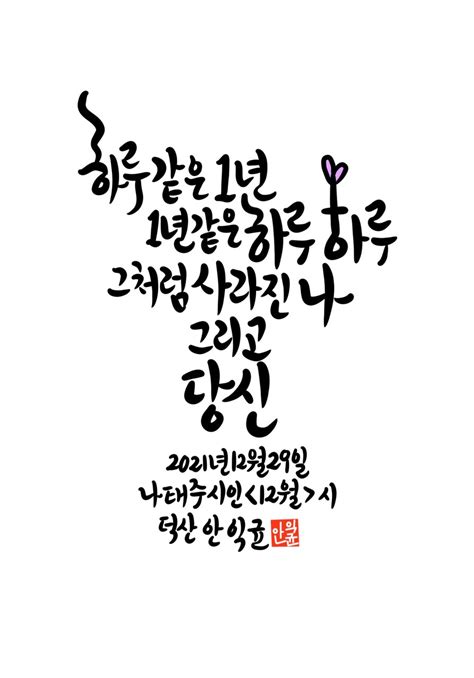 하루 같은 1년
1년 같은 하루 하루
그처럼 사라진 나
그리고
당신
2021년 12월 29일
나태주시인<12월>시
덕산 안익균
안익균